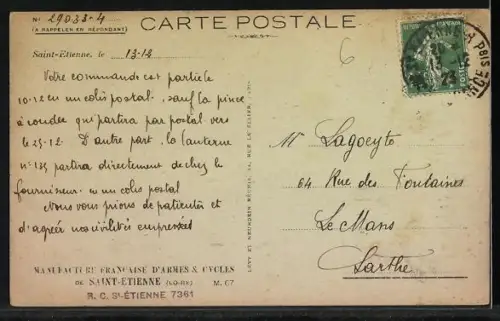 CARTE POSTALE
No 29033-4
(A RAPPELER EN RÉPONDANT)
Saint-Etienne, le 13-12
Votre commande est partie le
10-12 en un colis postal, sauf la pince
à souder qui partira par postal vers
le 25-12. D'autre part, la lanterne
no 135 partira directement de chez le
fournisseur en un colis postal
Nous vous prions de patienter et
d'agréer nos civilités empressées
MANUFACTURE FRANÇAISE D'ARMES & CYCLES
DE SAINT-ÉTIENNE (LOIRE) M. 67
R. C. St-ÉTIENNE 7361
6
M Lagoeyte
64 Rue des Fontaines
Le Mans
Sarthe